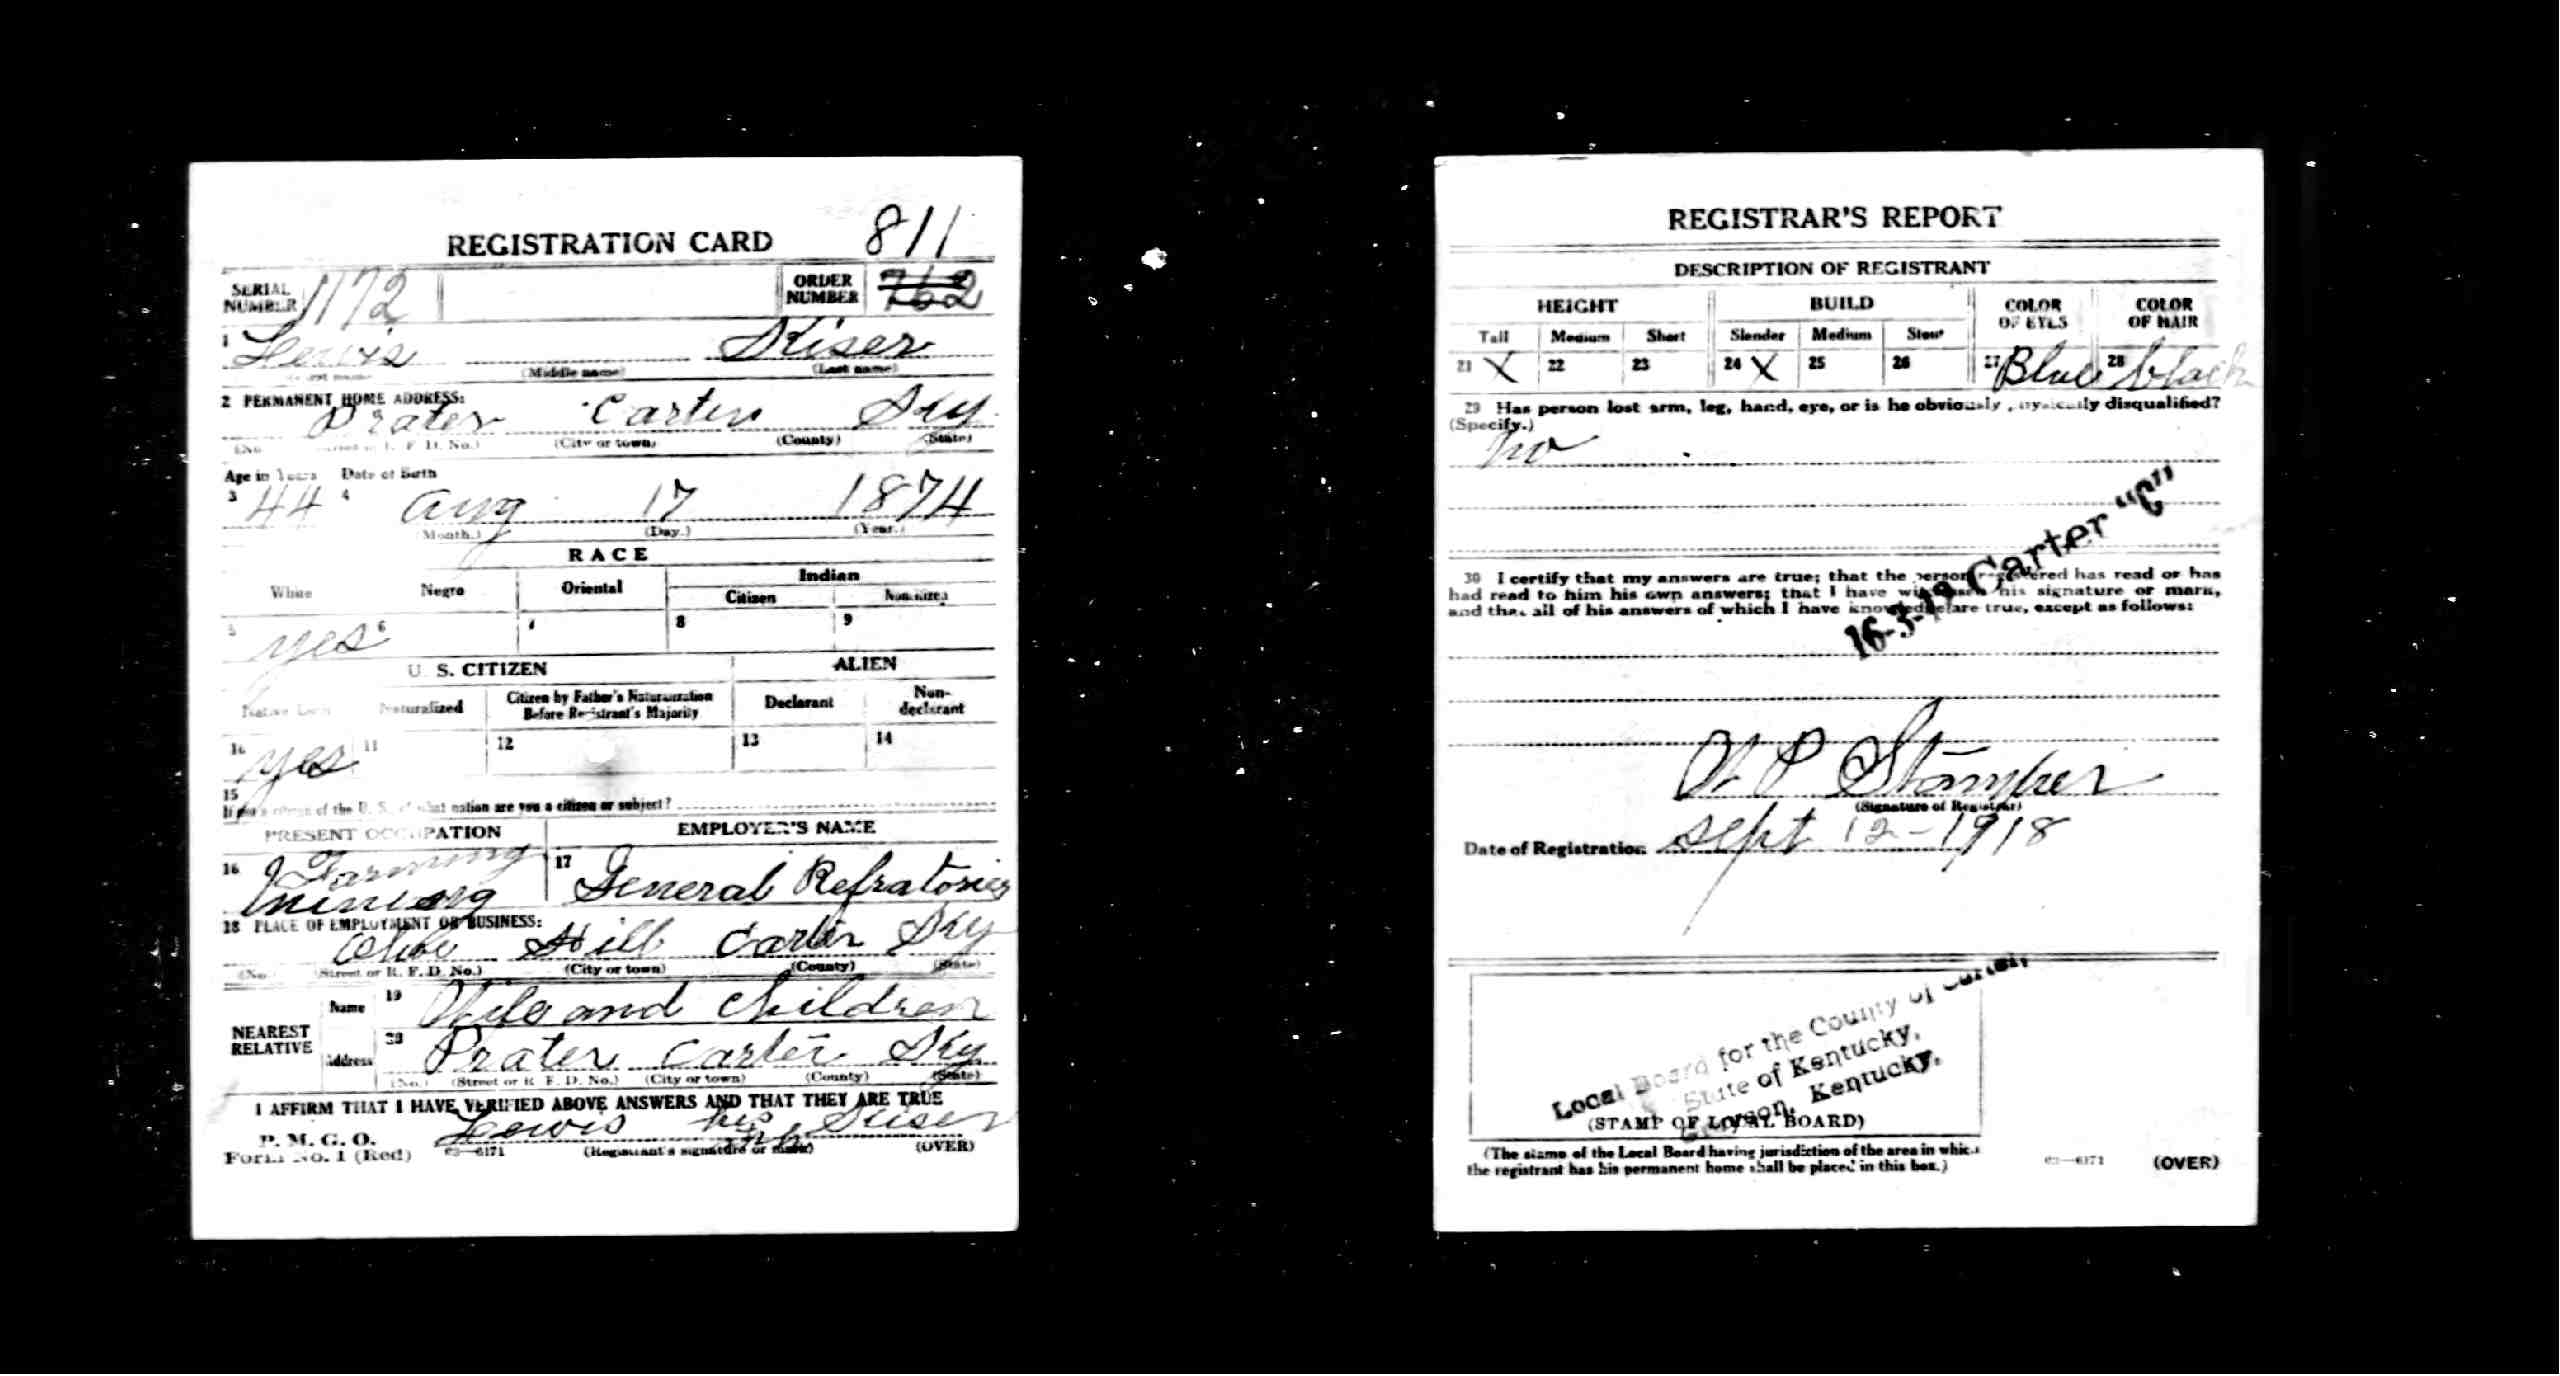 REGISTRATION CARD 811
SERIAL NUMBER 1172 ORDER NUMBER 762
1 Lewis Kiser
(First name) (Middle name) (Last name)
2 PERMANENT HOME ADDRESS:
Prater Carter Ky
(No.) (Street or R. F. D. No.) (City or town) (County) (State)
Age in Years Date of Birth
3 44 4 Aug 17 1874
(Month.) (Day.) (Year.)
RACE
White Negro Oriental Indian
Citizen Noncitizen
5 yes 6 7 8 9
U. S. CITIZEN ALIEN
Native Born Naturalized Citizen by Father's Naturalization Before Registrant's Majority Declarant Non-declarant
10 yes 11 12 13 14
15
If not a citizen of the U. S., of what nation are you a citizen or subject?
PRESENT OCCUPATION EMPLOYER'S NAME
16 Farming mining 17 General Refratories
18 PLACE OF EMPLOYMENT OR BUSINESS:
Olive Hill Carter Ky
(No.) (Street or R. F. D. No.) (City or town) (County) (State)
NEAREST RELATIVE Name 19 Wife and children
Address 20 Prater Carter Ky
(No.) (Street or R. F. D. No.) (City or town) (County) (State)
I AFFIRM THAT I HAVE VERIFIED ABOVE ANSWERS AND THAT THEY ARE TRUE
P. M. G. O.
Form No. 1 (Red) Lewis his Kiser
03—6171 (Registrant's signature or mark) (OVER)
REGISTRAR'S REPORT
DESCRIPTION OF REGISTRANT
HEIGHT BUILD COLOR OF EYES COLOR OF HAIR
Tall Medium Short Slender Medium Stout
21 X 22 23 24 X 25 26 27 Blue 28 black
29 Has person lost arm, leg, hand, eye, or is he obviously physically disqualified?
(Specify.)
no
16-3-19 Carter "C"
30 I certify that my answers are true; that the person registered has read or has
had read to him his own answers; that I have witnessed his signature or mark,
and that all of his answers of which I have knowledge are true, except as follows:
W P Stamper
(Signature of Registrar)
Date of Registration Sept 12-1918
Local Board for the County of Carter,
State of Kentucky,
Grayson, Kentucky.
(STAMP OF LOCAL BOARD)
(The stamp of the Local Board having jurisdiction of the area in which
the registrant has his permanent home shall be placed in this box.)
03—6171 (OVER)